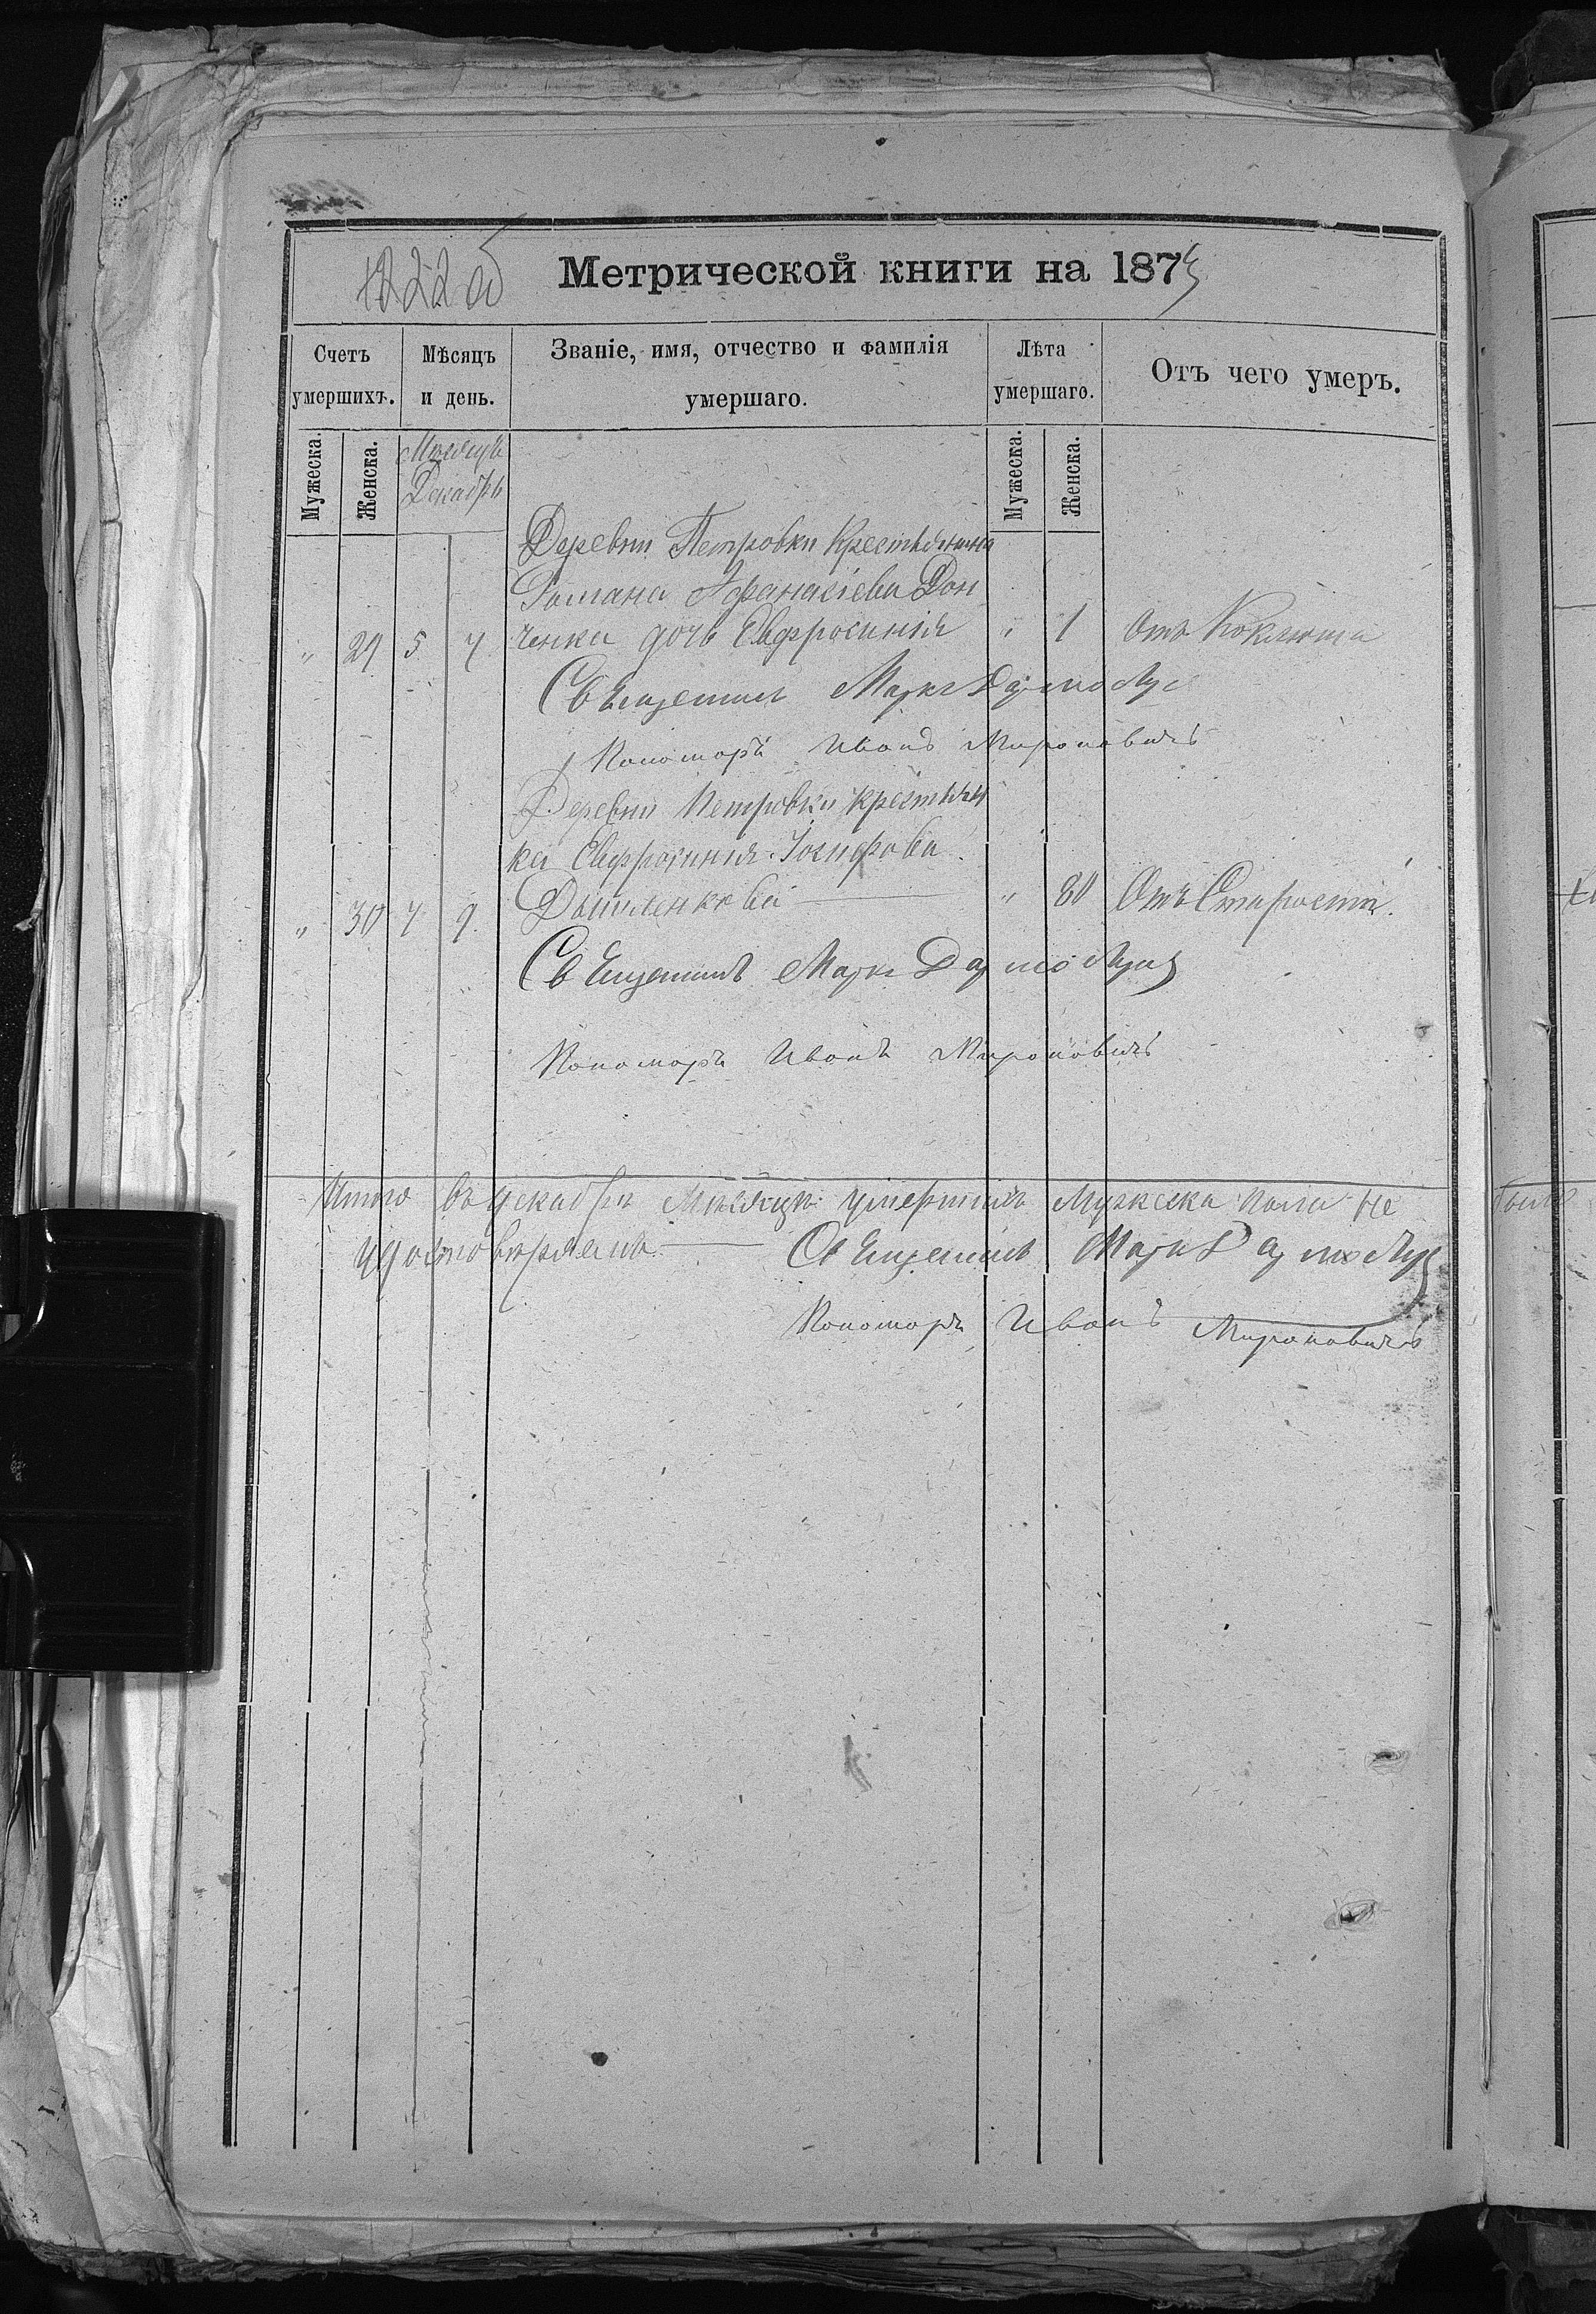 1222 об
Метрической книги на 1873
Счетъ умершихъ.
Мѣсяцъ и день.
Званіе, имя, отчество и фамилія умершаго.
Лѣта умершаго.
Отъ чего умеръ.
Мужеска. Женска. Мѣсяцъ Декабрь Мужеска. Женска.
Деревни Петровки Крестьянина
Романа Афанасіева Дон
" 29 5 7 ченка дочь Евфросинія " 1 Отъ Коклюша
Священникъ Маркъ
Пономарь Иванъ Мироновичъ
Деревни Петровки крестьян
ка Евфросинія Іосифова
" 30 7 9 " 80 Отъ Старости.
Священникъ Маркъ
Пономарь Иванъ Мироновичъ
Итого въ декабрѣ мѣсяцѣ умершихъ мужеска пола не
удостовѣряемъ. Священникъ Маркъ
Пономарь Иванъ Мироновичъ